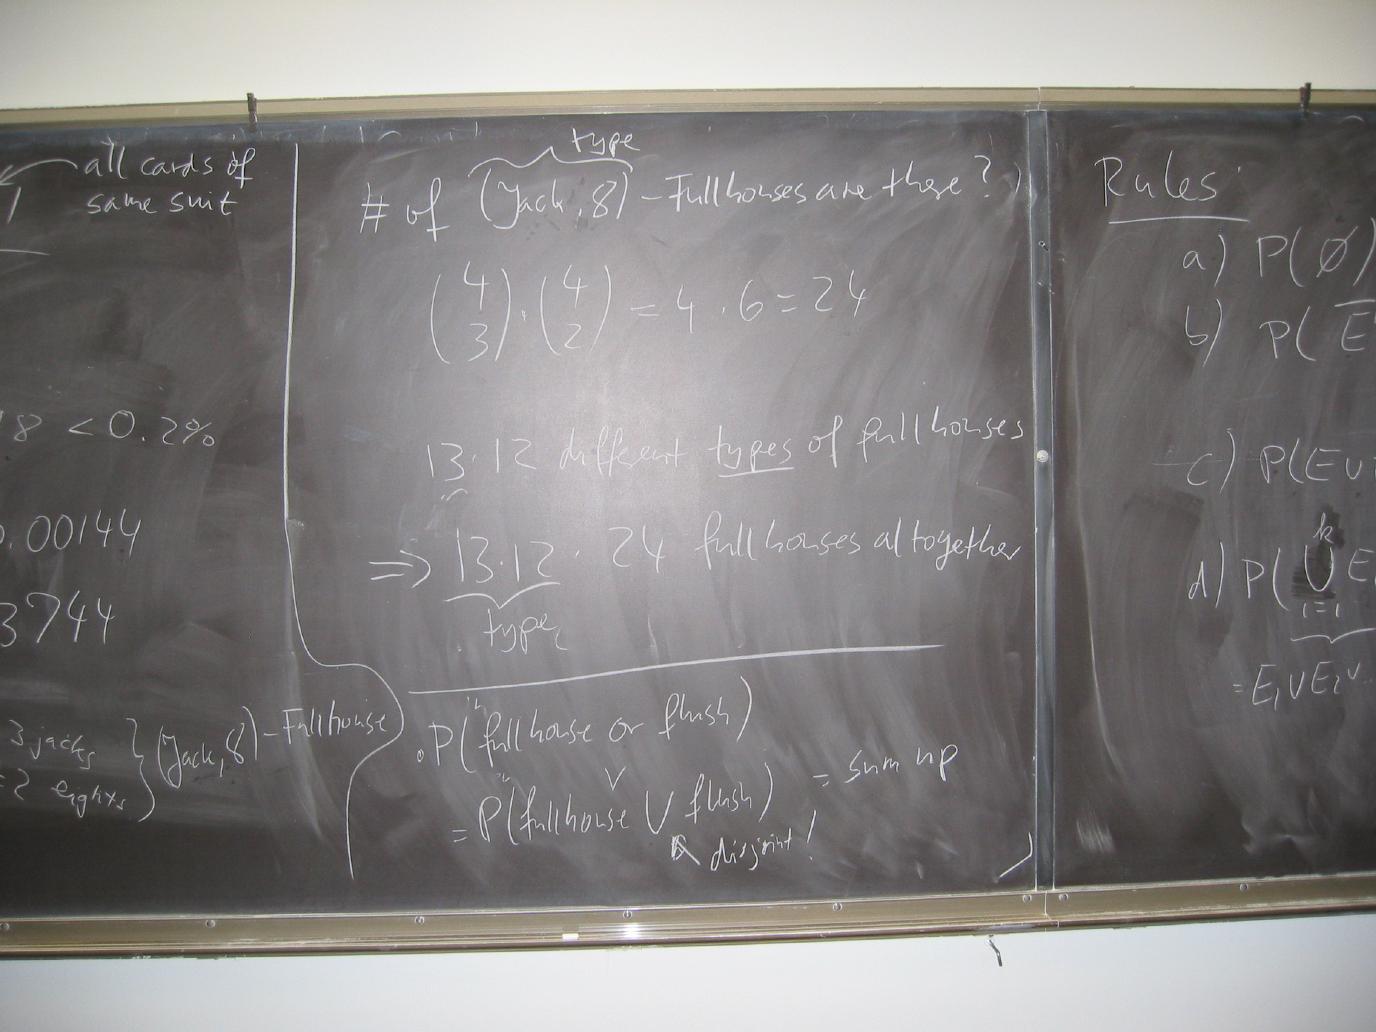 all cards of
same suit
8 < 0.2%
.00144
3744
3 jacks
2 eights } (Jack, 8) - Fullhouse
type
# of (Jack, 8) - Fullhouses are there?
(4 3) · (4 2) = 4 · 6 = 24
13 · 12 different types of fullhouses
⇒ 13 · 12 · 24 fullhouses altogether
type
P("fullhouse or flush)
= P("fullhouse ∪ flush) = sum up
disjoint!
Rules:
a) P(∅)
b) P(E
c) P(E ∪
d) P(⋃ E
k
i=1
= E₁ ∪ E₂ ∪ ..